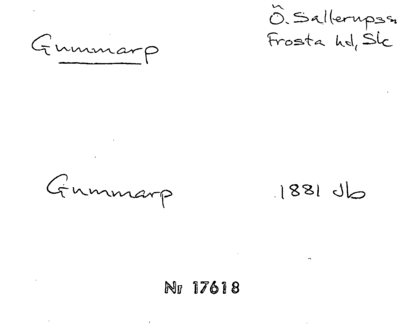 Gummarp
Ö. Sallerups sn
Frosta hd, Sk
Gummarp
1881 Jb
Nr 17618